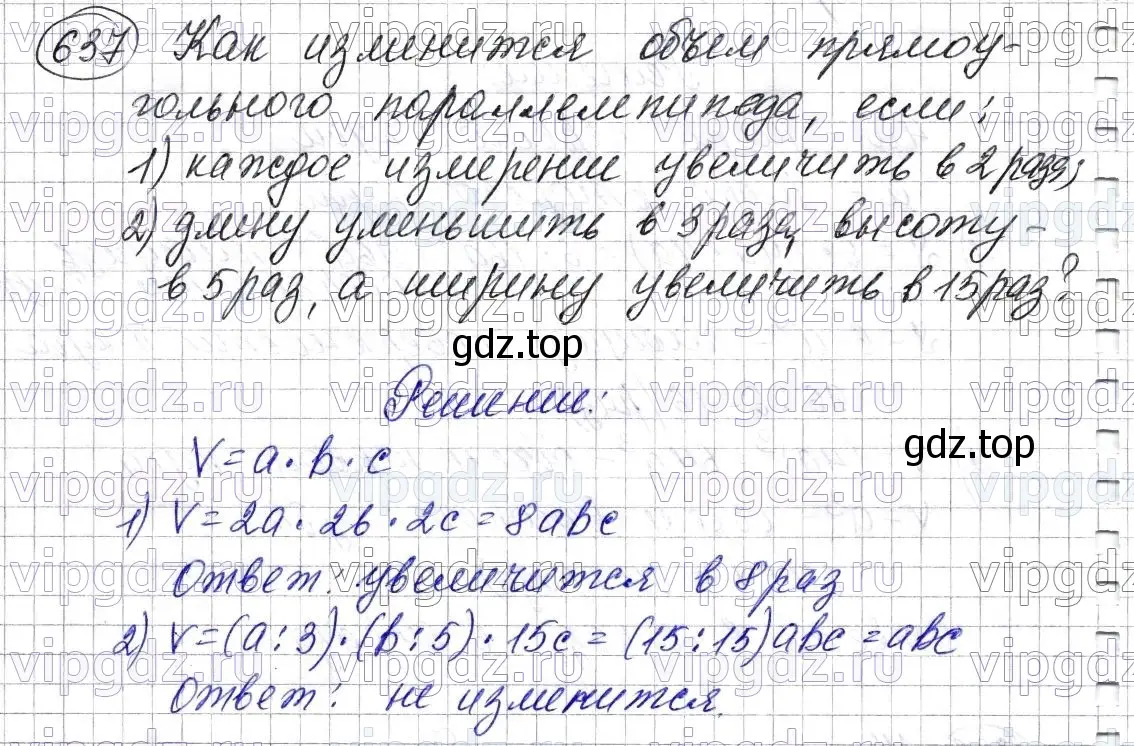 637 Как изменится объем прямоу-
гольного параллелепипеда, если:
1) каждое измерение увеличить в 2 раза;
2) длину уменьшить в 3 раза, высоту -
в 5 раз, а ширину увеличить в 15 раз?
gdz.top
Решение:
V = a · b · c
gdz.top
1) V = 2a · 2b · 2c = 8abc
Ответ: увеличится в 8 раз
2) V = (a : 3) · (b : 5) · 15c = (15 : 15)abc = abc
Ответ: не изменится.
vipgdz.ru